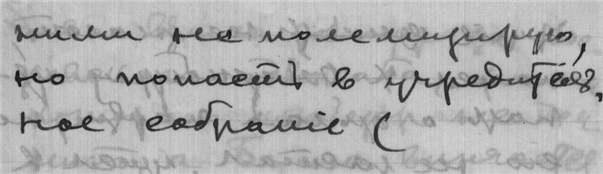 ними не полемизирую,
но попасть в учредитель-
ное собраніе (